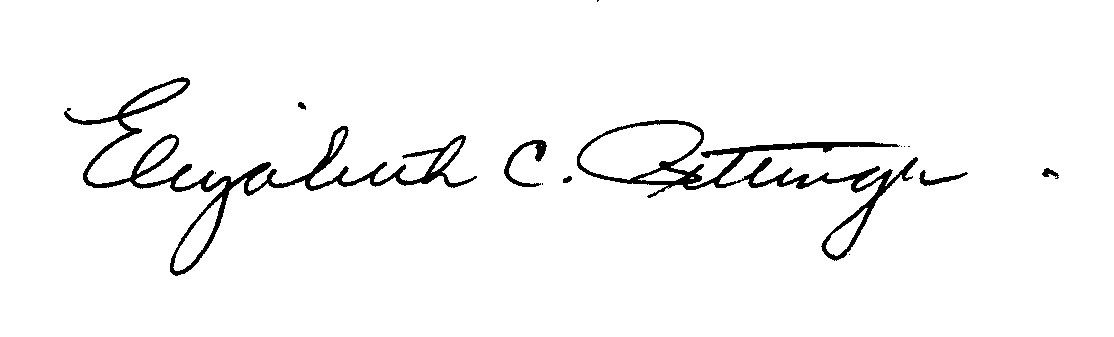 Elizabeth C. Pettinger